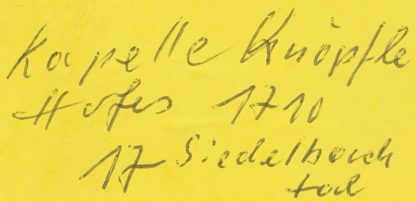 Kapelle Knöpfle
Hofes 1710
17 Siedelbach
tal